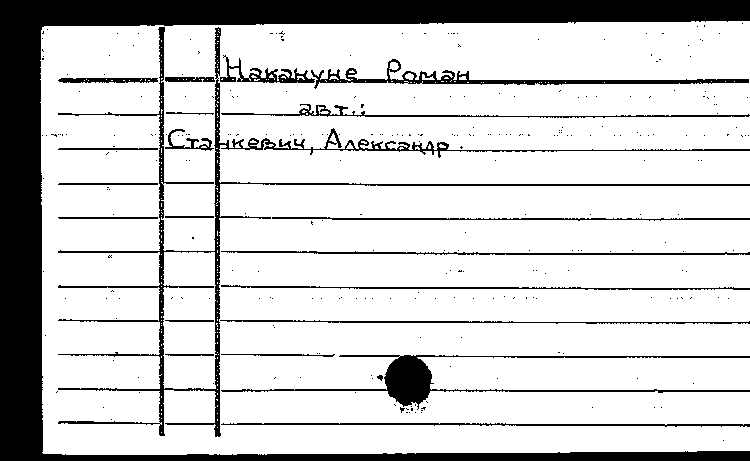 Накануне Роман
авт.:
Станкевич, Александр.